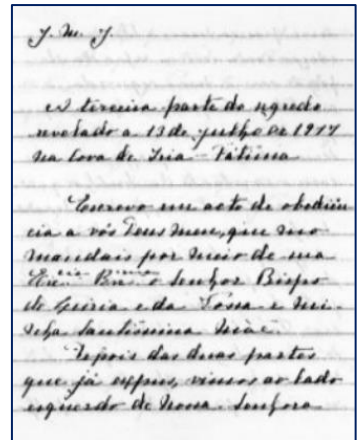 J. M. J.
A terceira parte do segredo
revelado a 13 de julho de 1917
na Cova de Iria - Fátima
Escrevo em acto de obediên
cia a vós Deus meu, que mo
mandais por meio de sua
Ex.cia Rev.ma o Senhor Bispo
de Leiria e da Vossa e mi
nha Santíssima Mãe.
Depois das duas partes
que já expus, vimos ao lado
esquerdo de Nossa Senhora